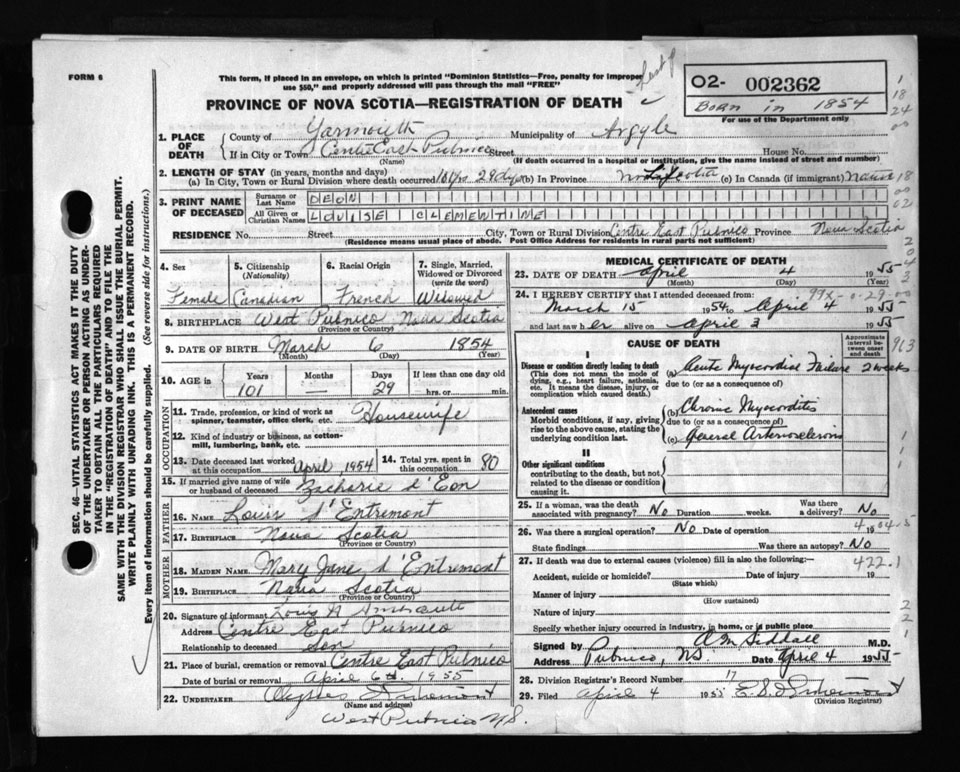 FORM 6
This form, if placed in an envelope, on which is printed "Dominion Statistics—Free, penalty for improper
use $50," and properly addressed will pass through the mail "FREE"
PROVINCE OF NOVA SCOTIA—REGISTRATION OF DEATH
O2- 002362
Born in 1854
For use of the Department only
1. PLACE OF DEATH
County of Yarmouth Municipality of Argyle
If in City or Town Centre East Pubnico Street House No.
(Name) (If death occurred in a hospital or institution, give the name instead of street and number)
2. LENGTH OF STAY (in years, months and days)
(a) In City, Town or Rural Division where death occurred 29 dys (b) In Province (c) In Canada (if immigrant)
3. PRINT NAME OF DECEASED
Surname or Last Name DEON
All Given or Christian Names LOUISE CLEMENTINE
RESIDENCE No. Street City, Town or Rural Division Centre East Pubnico Province Nova Scotia
(Residence means usual place of abode. Post Office Address for residents in rural parts not sufficient)
4. Sex Female
5. Citizenship (Nationality) Canadian
6. Racial Origin French
7. Single, Married, Widowed or Divorced (write the word) Widowed
8. BIRTHPLACE West Pubnico Nova Scotia
(Province or Country)
9. DATE OF BIRTH March 6 1854
(Month) (Day) (Year)
10. AGE in Years Months Days If less than one day old
101 29 hrs. or min.
OCCUPATION
11. Trade, profession, or kind of work as spinner, teamster, office clerk, etc. Housewife
12. Kind of industry or business, as cotton-mill, lumbering, bank, etc.
13. Date deceased last worked at this occupation April 1954
14. Total yrs. spent in this occupation 80
15. If married give name of wife or husband of deceased Zacharie d'Eon
FATHER
16. NAME Louis d'Entremont
17. BIRTHPLACE Nova Scotia
(Province or Country)
MOTHER
18. MAIDEN NAME Mary Jane d'Entremont
19. BIRTHPLACE Nova Scotia
(Province or Country)
20. Signature of informant Louis A
Address Centre East Pubnico
Relationship to deceased Son
21. Place of burial, cremation or removal Centre East Pubnico
Date of burial or removal April 6th, 1955
22. UNDERTAKER Ulysses d'Entremont
(Name and address)
West Pubnico N.S.
MEDICAL CERTIFICATE OF DEATH
23. DATE OF DEATH April 4 1955
(Month) (Day)
24. I HEREBY CERTIFY that I attended deceased from:
March 15 1954 to April 4 1955
and last saw her alive on April 3 1955
CAUSE OF DEATH
Approximate interval between onset and death
I
Disease or condition directly leading to death
(This does not mean the mode of dying, e.g., heart failure, asthenia, etc. It means the disease, injury, or complication which caused death.)
(a) Acute Myocardial Failure 2 weeks
due to (or as a consequence of)
Antecedent causes
Morbid conditions, if any, giving rise to the above cause, stating the underlying condition last.
(b) Chronic Myocarditis
due to (or as a consequence of)
(c) General Arteriosclerosis
II
Other significant conditions
contributing to the death, but not related to the disease or condition causing it.
25. If a woman, was the death associated with pregnancy? No Duration weeks. Was there a delivery? No
26. Was there a surgical operation? No Date of operation 19
State findings Was there an autopsy? No
27. If death was due to external causes (violence) fill in also the following:— 422.1
Accident, suicide or homicide? Date of injury 19
(State which)
Manner of injury
(How sustained)
Nature of injury
Specify whether injury occurred in industry, in home, or in public place
Signed by A M Siddall M.D.
Address Pubnico, NS Date April 4 1955
28. Division Registrar's Record Number 17
29. Filed April 4 1955
(Division Registrar)
SEC. 46—VITAL STATISTICS ACT MAKES IT THE DUTY
OF THE UNDERTAKER OR PERSON ACTING AS UNDERTAKER
TO OBTAIN ALL THE PARTICULARS REQUIRED
IN THE "REGISTRATION OF DEATH" AND TO FILE THE
SAME WITH THE DIVISION REGISTRAR WHO SHALL ISSUE THE BURIAL PERMIT.
WRITE PLAINLY WITH UNFADING INK. THIS IS A PERMANENT RECORD.
Every item of information should be carefully supplied. (See reverse side for instructions.)